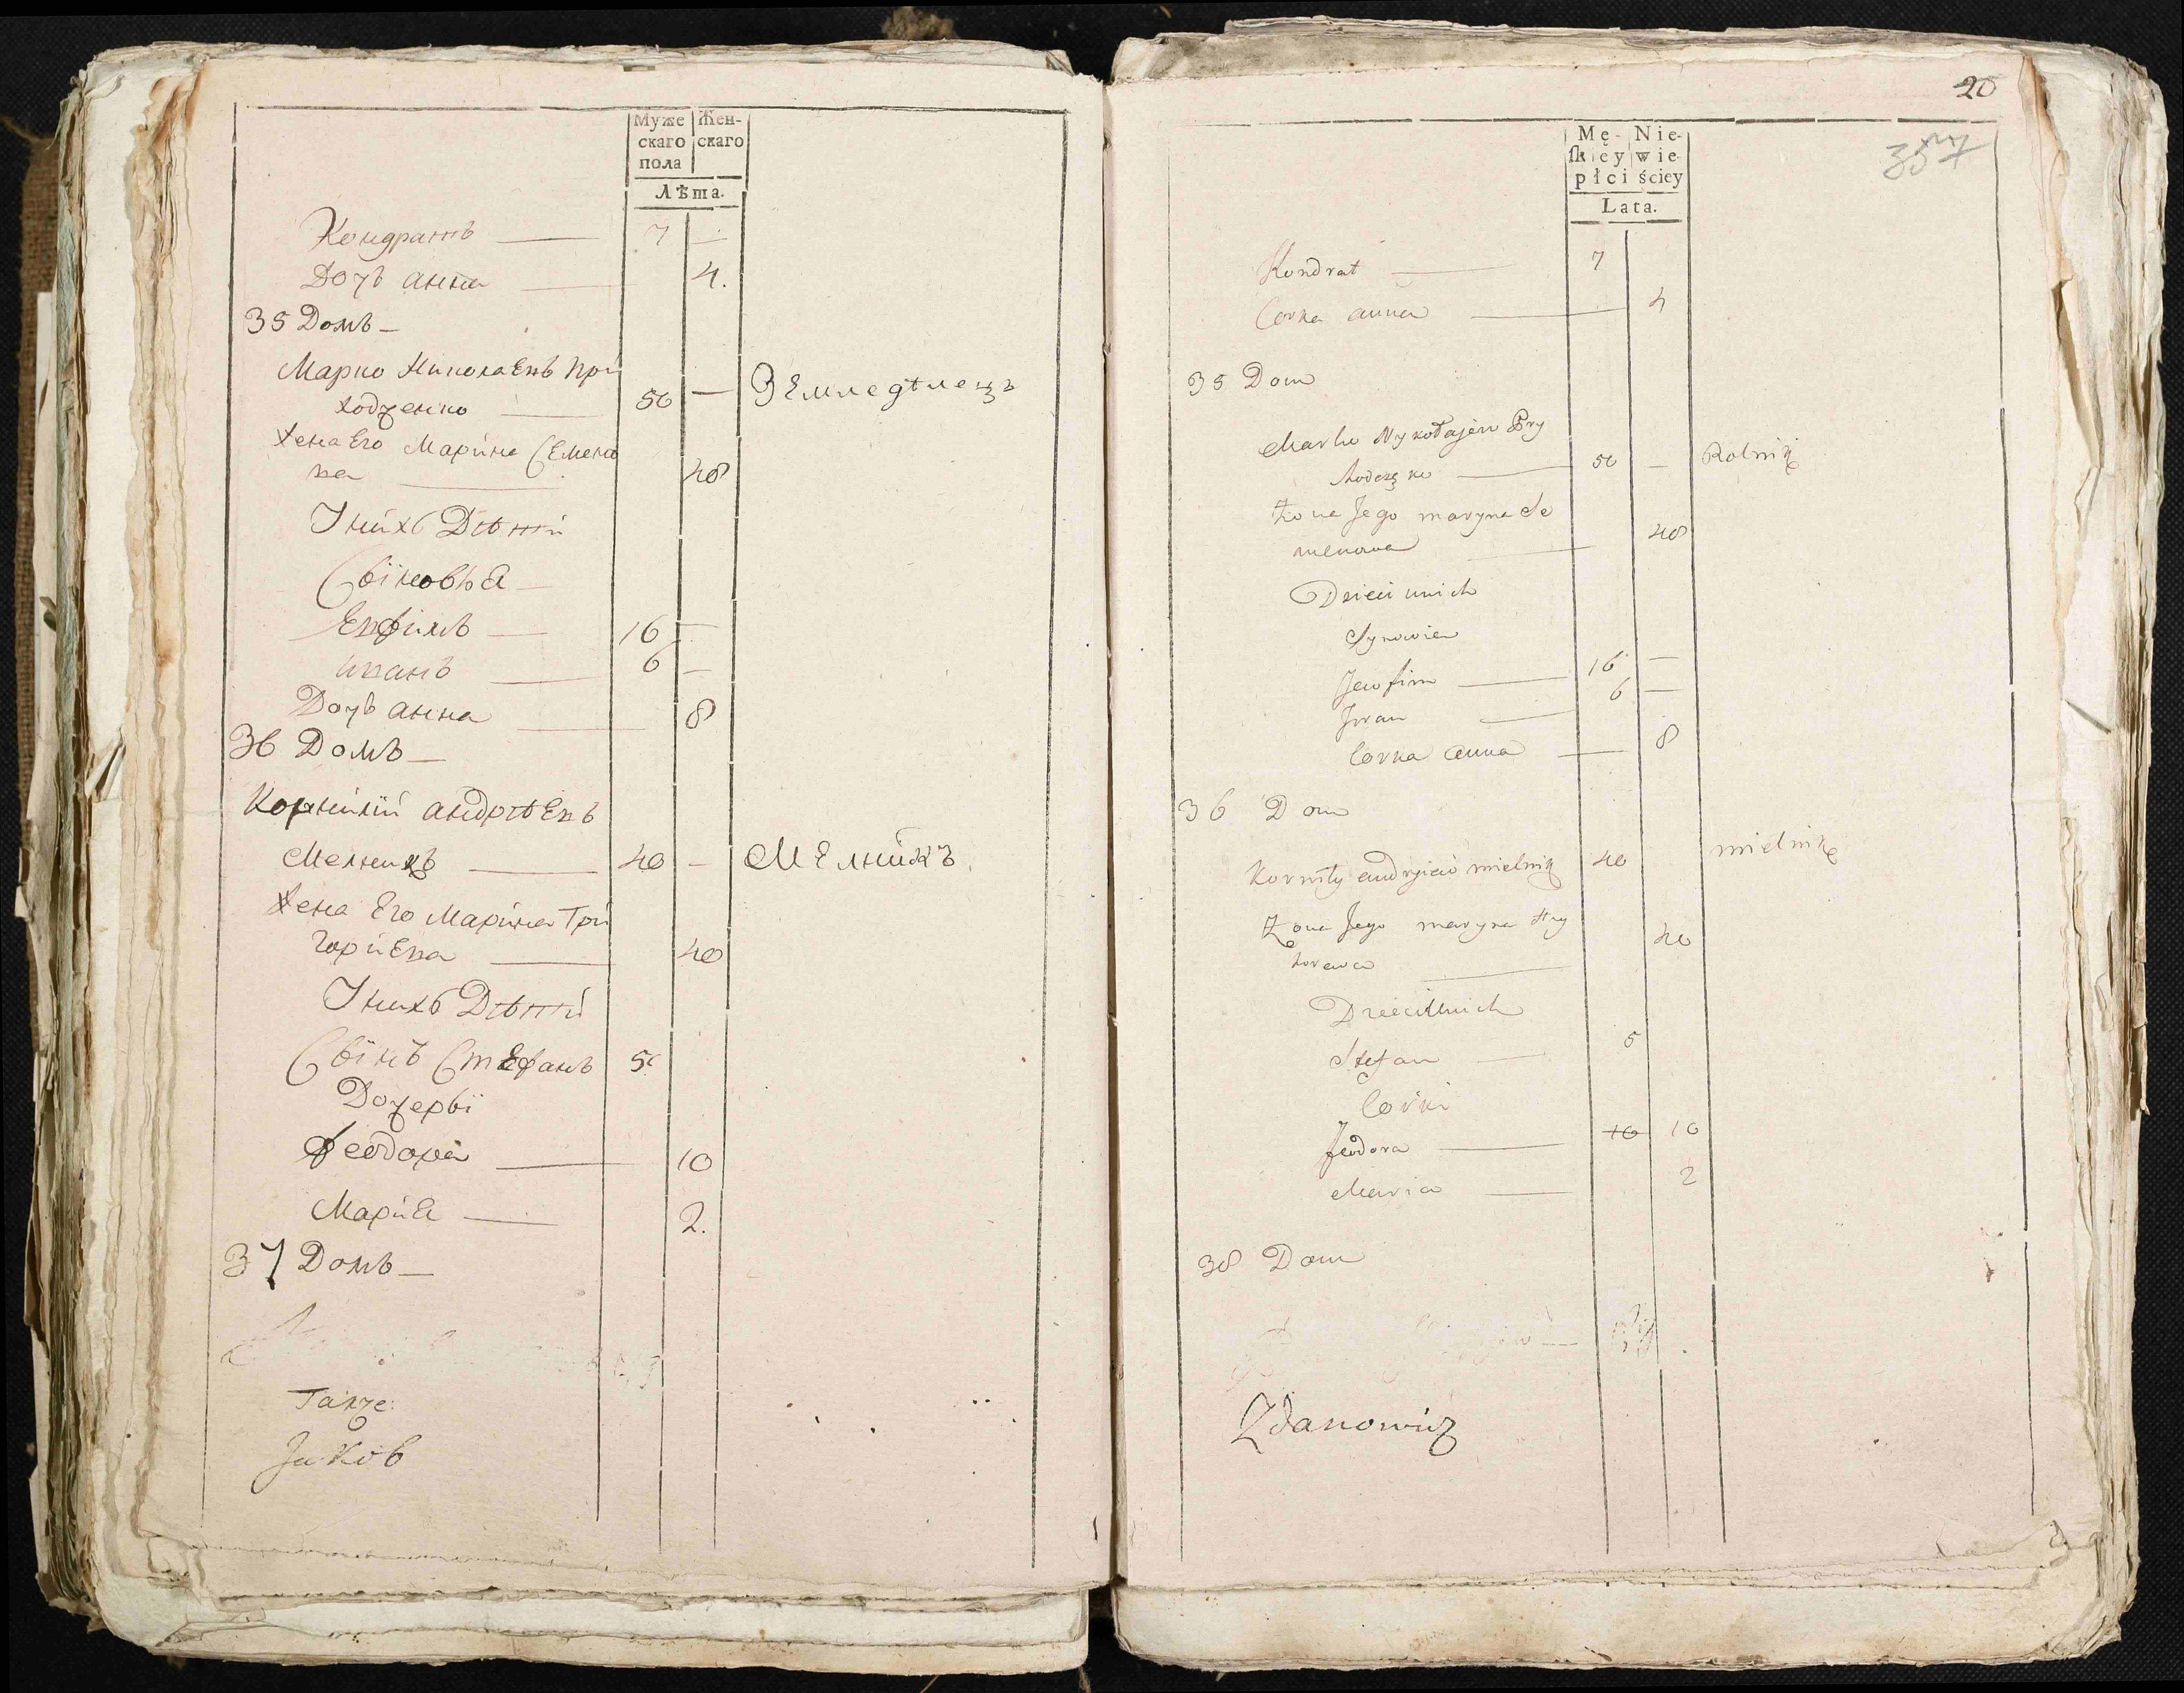 Муже Жен-
скаго скаго
пола
Лѣта.
Кондратъ — 7 —
Дочь анна — 4.
35 Домъ —
Марко Николаевъ При
ходченко — 50 — Земледѣлецъ
Жена Его Марина Семено
ва — 48
У нихъ Дѣти
Сыновья —
Евфимъ — 16 —
иванъ — 6 —
Дочь анна — 8
36 Домъ —
Корнилий андрѣевъ
Мелникъ — 40 — Мелникъ.
Жена Его Марина Гри
гориева — 40
У нихъ Дѣти
Сынъ Стефанъ 5
Дочеры
Феодора — 10
Мария — 2.
37 Домъ —
Такче:
Jаков
20
357
Mę- Nie-
ſkiey wie-
płci ściey
Lata.
Kondrat — 7
Corka anna — 4
35 Dom
Marko Nykołajew Pry
hodczęko — 50 — Rolnik
Żona Jego maryna Se
menowa — 48
Dzieci unich
Synowie
Jewfim — 16 —
Jwan — 6 —
Corka anna — 8
36 Dom
Korniły andryiew mielnik 40 mielnik
Żona Jego maryna Hry
horewa — 40
Dzieci Unich
Stefan — 5
Corki
feodora — 10 10
Maria — 2
38 Dom
Zdanowicz